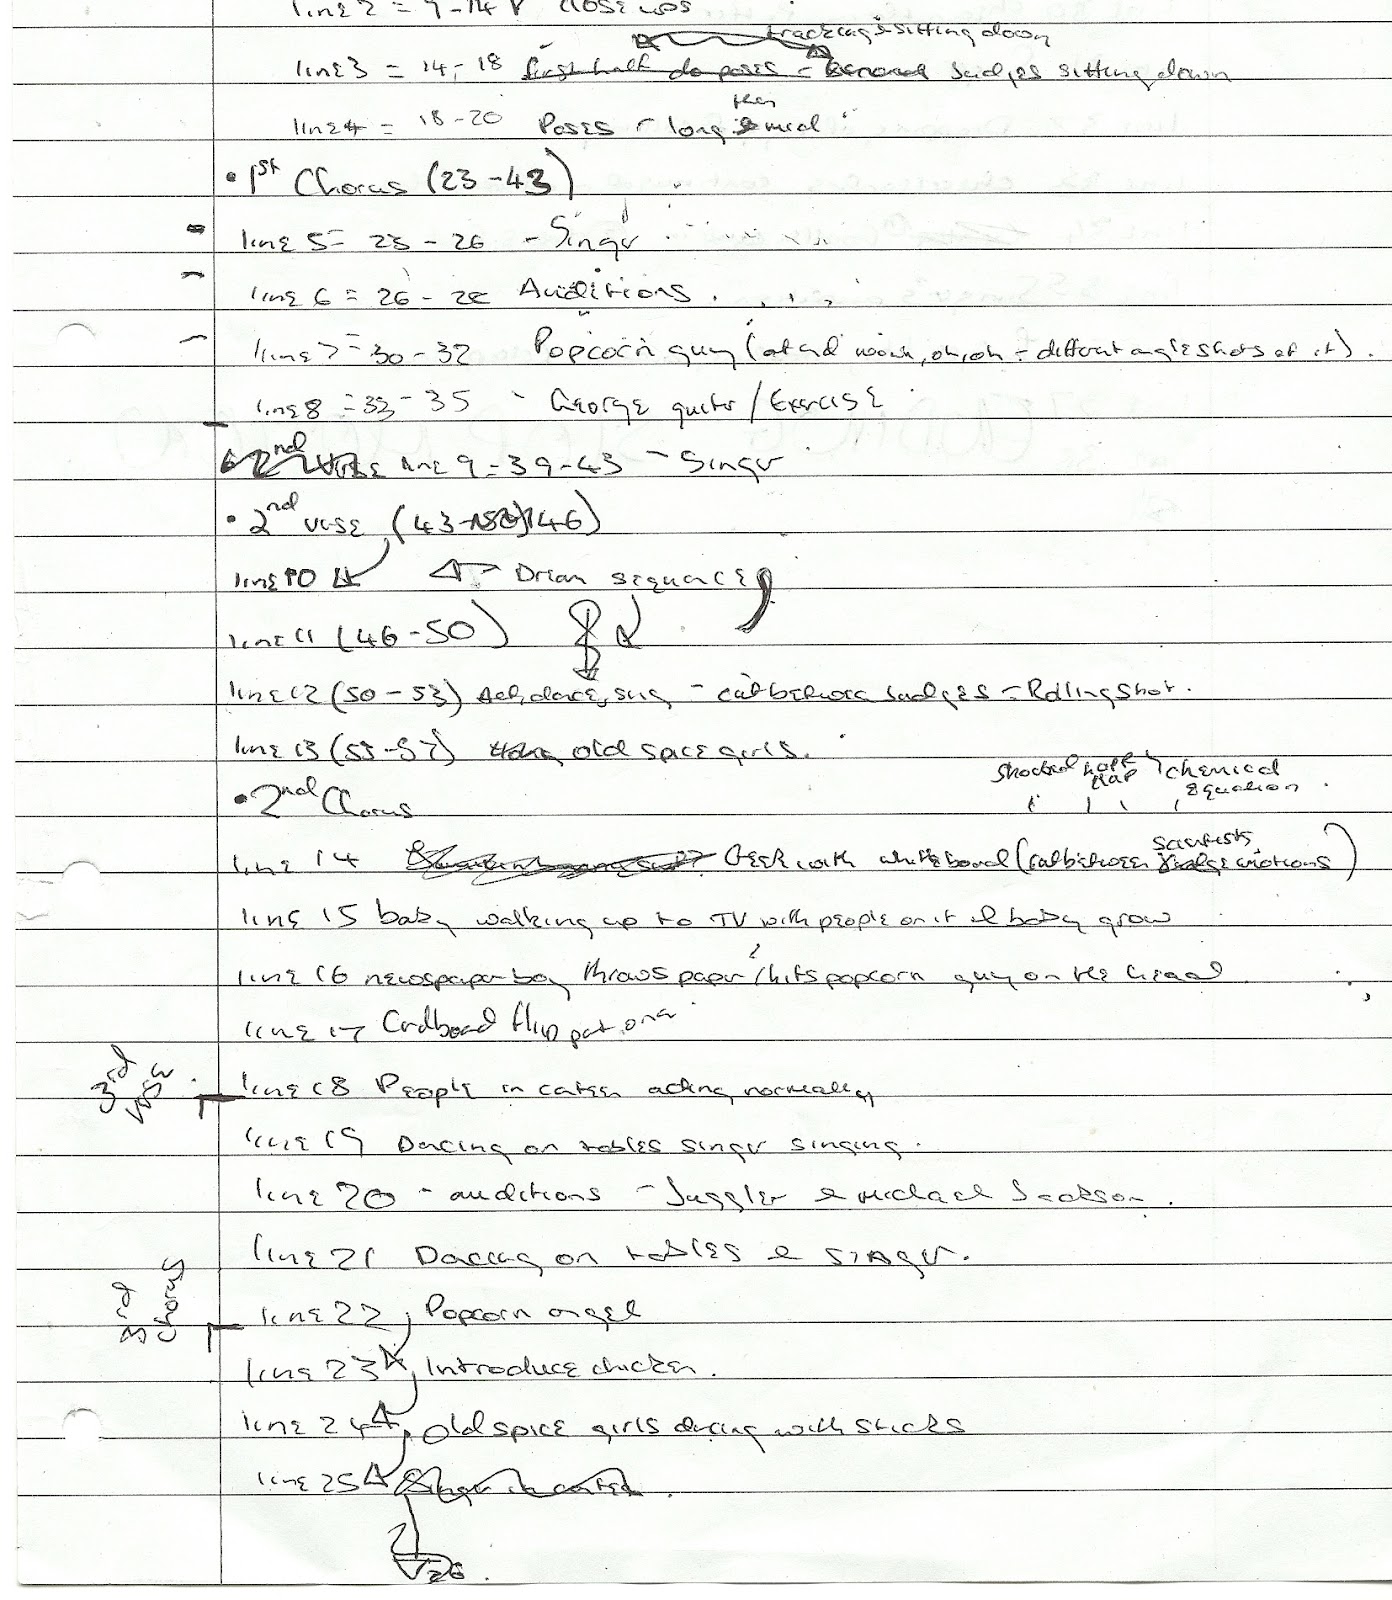 line 2 = 9-14 close ups
tracking & sitting down
line 3 = 14-18 first half do poses - Judges sitting down
then
line 4 = 18-20 Poses - long & mid
• 1st Chorus (23-43)
line 5 = 23-26 - Singer
line 6 = 26-28 Auditions
line 7 = 30-32 Popcorn guy (at work, oh oh - different angle shots of it).
line 8 = 33-35 - George guitar / Exercise
2nd verse line 9 = 39-43 - Singer
• 2nd verse (43-46)
line 10 Dream sequence
line 11 (46-50)
line 12 (50-53) Act, dance, sing - cut between judges - Rolling shot.
line 13 (53-57) old spice girls.
shocked chemical
equation
• 2nd Chorus
scientists
line 14 Geek with whiteboard (cut between judge emotions)
line 15 baby walking up to TV with people on it & baby grow
line 16 newspaper boy throws paper / hits popcorn guy on the head
line 17 Cardboard flip
3rd verse
line 18 People in canteen acting normally
line 19 Dancing on tables singer singing.
line 20 - auditions - Juggler & Michael Jackson.
line 21 Dancing on tables & singer.
3rd Chorus
line 22, Popcorn angel
line 23 Introduce chicken.
line 24, Old spice girls dancing with sticks
line 25 Singer in canteen.
26.